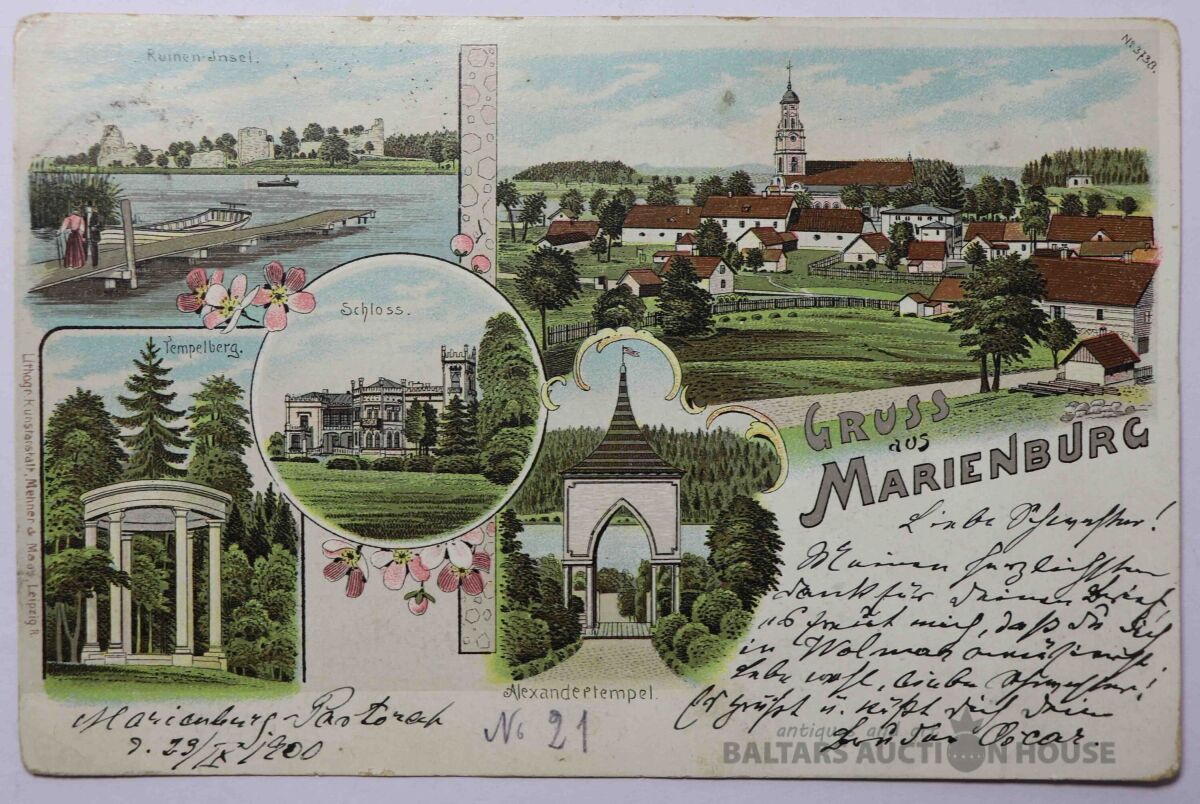 Ruinen-Insel.
No 3738.
Schloss.
Tempelberg.
Alexandertempel.
GRUSS
aus
MARIENBURG
Lithogr. Kunstanstalt, Mehner & Maas, Leipzig R.
Liebe Schwester!
Meinen herzlichsten
Dank für Deinen Brief,
es freut mich, daß Du Dich
in Wolmar amüsirst.
Lebe wohl, liebe Schwester!
Es grüßt u. küßt Dich Dein
Bruder Oscar.
Marienburg-Pastorat
d. 29/IX 1900.
No 21
antiques and art
BALTARS AUCTION HOUSE